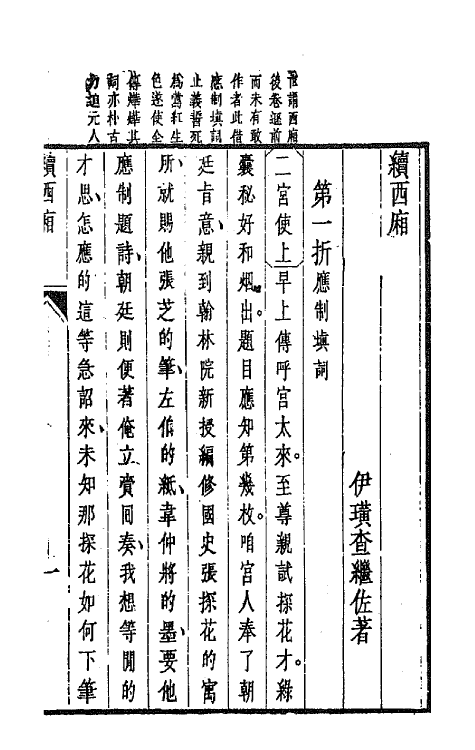 世謂西廂
後卷遜前
而未有敢
作者此借
應制填詞
止義誓死
為鶯紅生
色遂使全
傳燁燁其
詞亦朴古
力追元人
續西廂
伊璜查繼佐著
第一折應制填詞
二宮使上早上傳呼宮太來。至尊親試探花才。綠
囊秘好和烟出。題目應知第幾枚。咱宮人奉了朝
廷旨意、親到翰林院新授編修國史張探花的寓
所、就賜他張芝的筆、左伯的紙、韋仲將的墨、要他
應制題詩、朝廷則便著俺立賫回奏、我想等閒的
才思、怎應的這等急詔來、未知那探花如何下筆
續西廂
一